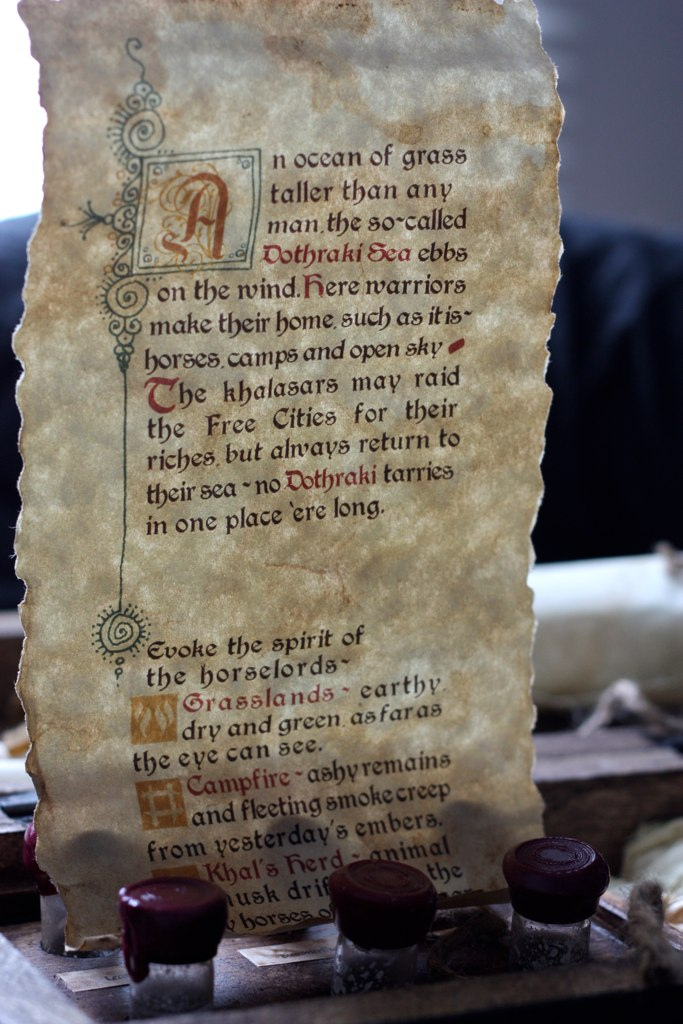 An ocean of grass
taller than any
man, the so-called
Dothraki Sea ebbs
on the wind. Here warriors
make their home, such as it is-
horses, camps and open sky
The khalasars may raid
the Free Cities for their
riches, but always return to
their sea - no Dothraki tarries
in one place 'ere long.
Evoke the spirit of
the horselords-
Grasslands - earthy
dry and green, as far as
the eye can see.
Campfire - ashy remains
and fleeting smoke creep
from yesterday's embers.
Khal's Herd - animal
the
horses